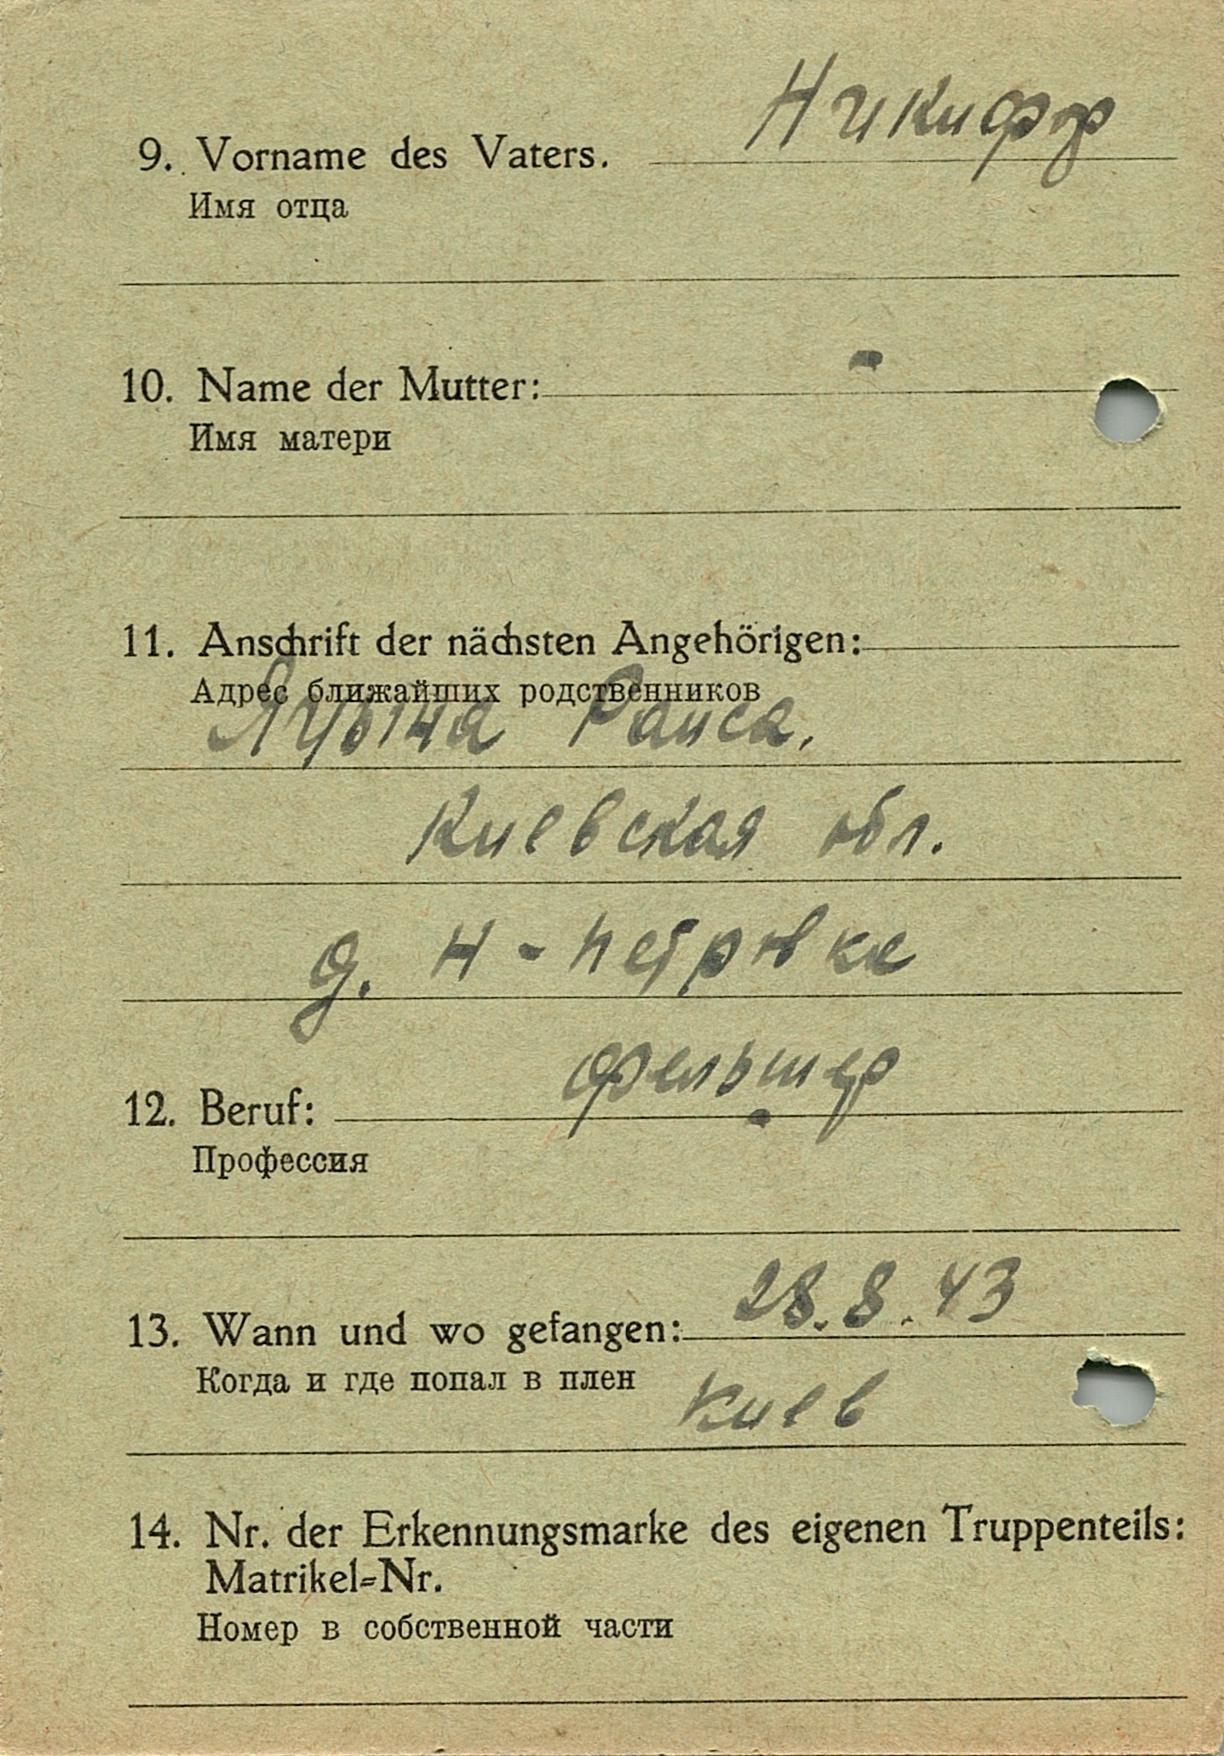 9. Vorname des Vaters. Никифор
Имя отца
10. Name der Mutter: -
Имя матери
11. Anschrift der nächsten Angehörigen:
Адрес ближайших родственников
Раиса.
Киевская обл.
д. Н-Петровка
12. Beruf: фельшер
Профессия
13. Wann und wo gefangen: 28.8.43
Когда и где попал в плен Киев
14. Nr. der Erkennungsmarke des eigenen Truppenteils:
Matrikel=Nr.
Номер в собственной части